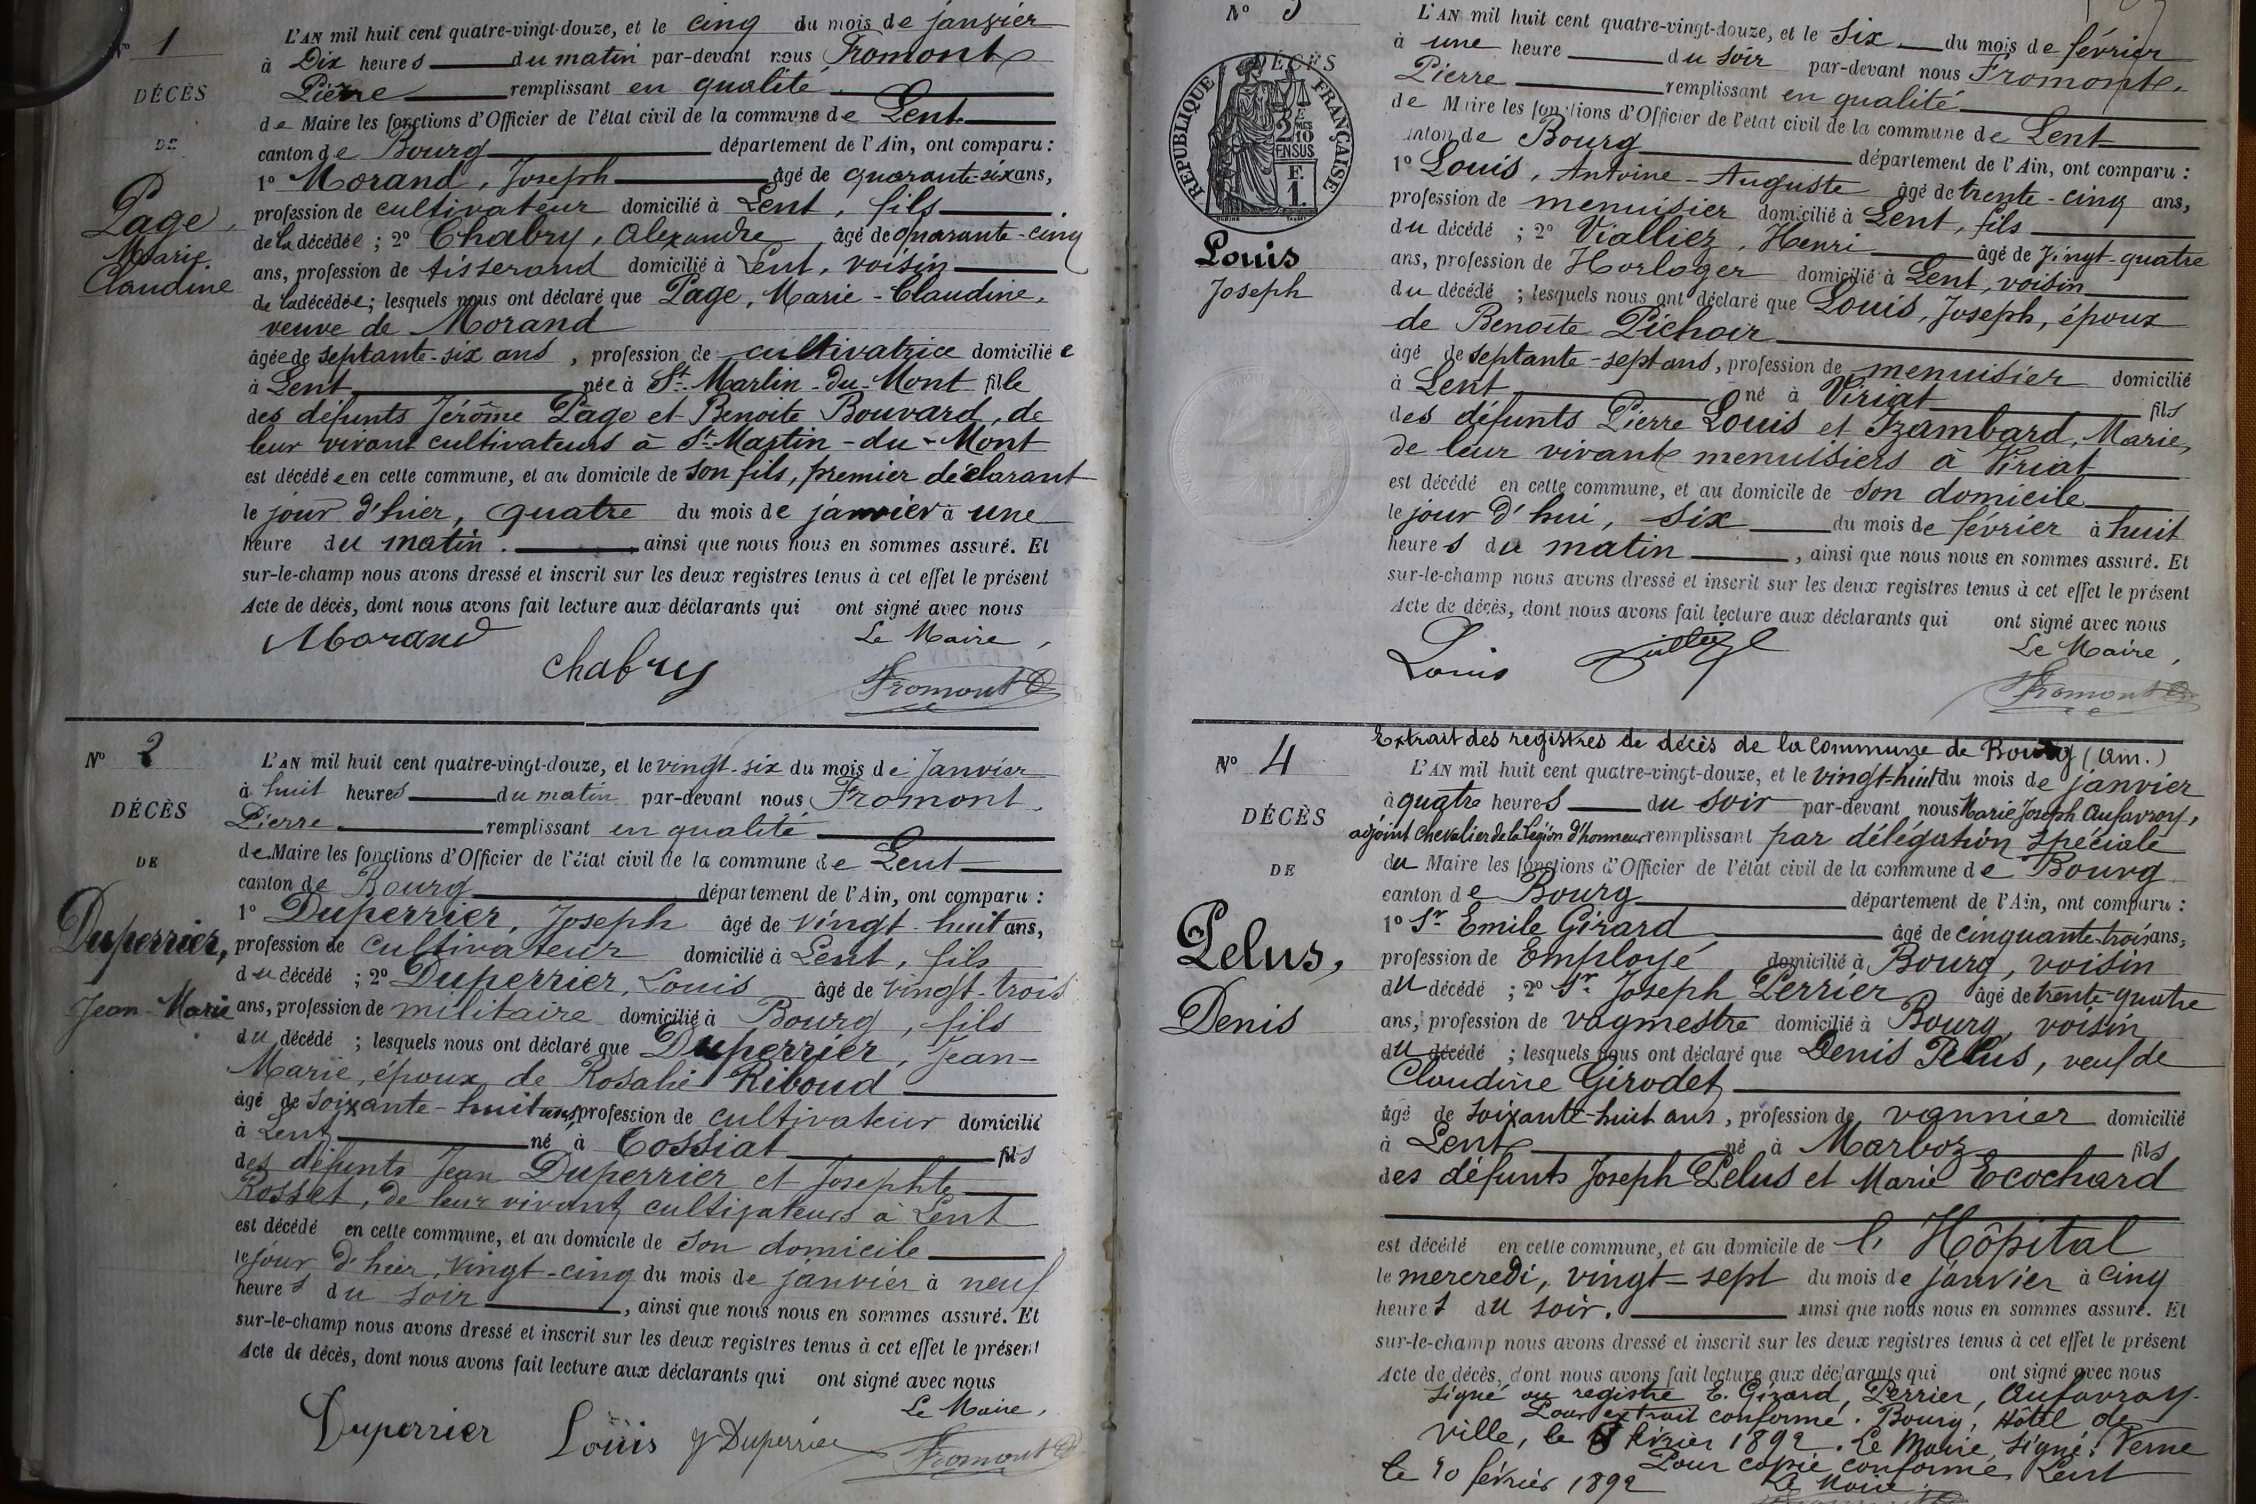 N° 1
DÉCÈS
DE
Page,
Marie
Claudine
L'AN mil huit cent quatre-vingt-douze, et le cinq du mois de janvier
à Dix heures du matin par-devant nous Fromont
Pierre remplissant en qualité
de Maire les fonctions d'Officier de l'état civil de la commune de Lent
canton de Bourg département de l'Ain, ont comparu :
1° Morand, Joseph âgé de quarante-six ans,
profession de cultivateur domicilié à Lent, fils
de la décédée ; 2° Chabry, Alexandre, âgé de quarante-cinq
ans, profession de tisserand domicilié à Lent, voisin
de la décédée ; lesquels nous ont déclaré que Page, Marie-Claudine,
veuve de Morand
âgée de septante-six ans, profession de cultivatrice domiciliée
à Lent née à St-Martin-du-Mont fille
des défunts Jérôme Page et Benoite Bouvard, de
leur vivant cultivateurs à St-Martin-du-Mont
est décédée en cette commune, et au domicile de son fils, premier déclarant
le jour d'hier, quatre du mois de janvier à une
heure du matin. ainsi que nous nous en sommes assuré. Et
sur-le-champ nous avons dressé et inscrit sur les deux registres tenus à cet effet le présent
Acte de décès, dont nous avons fait lecture aux déclarants qui ont signé avec nous
Le Maire,
Morand
Chabry
Fromont
N° 2
DÉCÈS
DE
Duperrier,
Jean-Marie
L'AN mil huit cent quatre-vingt-douze, et le vingt-six du mois de Janvier
à huit heures du matin par-devant nous Fromont,
Pierre remplissant en qualité
de Maire les fonctions d'Officier de l'état civil de la commune de Lent
canton de Bourg département de l'Ain, ont comparu :
1° Duperrier, Joseph âgé de vingt-huit ans,
profession de cultivateur domicilié à Lent, fils
du décédé ; 2° Duperrier, Louis âgé de vingt-trois
ans, profession de militaire domicilié à Bourg, fils
du décédé ; lesquels nous ont déclaré que Duperrier, Jean-
Marie, époux de Rosalie Riboud
âgé de soixante-huit ans profession de cultivateur domicilié
à Lent né à Tossiat fils
des défunts Jean Duperrier et Josephte
Rosset, de leur vivant cultivateurs à Lent
est décédé en cette commune, et au domicile de son domicile
le jour d'hier, vingt-cinq du mois de janvier à neuf
heures du soir, ainsi que nous nous en sommes assuré. Et
sur-le-champ nous avons dressé et inscrit sur les deux registres tenus à cet effet le présent
Acte de décès, dont nous avons fait lecture aux déclarants qui ont signé avec nous
Le Maire,
Duperrier Louis J Duperrier
Fromont
N° 3
DÉCÈS
RÉPUBLIQUE FRANÇAISE
2/10
EN SUS
F.
1.
Louis
Joseph
L'AN mil huit cent quatre-vingt-douze, et le six du mois de février
à une heure du soir par-devant nous Fromont,
Pierre remplissant en qualité
de Maire les fonctions d'Officier de l'état civil de la commune de Lent
canton de Bourg département de l'Ain, ont comparu :
1° Louis, Antoine-Auguste âgé de trente-cinq ans,
profession de menuisier domicilié à Lent, fils
du décédé ; 2° Vialliez, Henri âgé de vingt-quatre
ans, profession de Horloger domicilié à Lent, voisin
du décédé ; lesquels nous ont déclaré que Louis, Joseph, époux
de Benoite Pichoir
âgé de septante-sept ans, profession de menuisier domicilié
à Lent né à Viriat fils
des défunts Pierre Louis et Izambard, Marie,
de leur vivant menuisiers à Viriat
est décédé en cette commune, et au domicile de son domicile
le jour d'hui, six du mois de février à huit
heures du matin, ainsi que nous nous en sommes assuré. Et
sur-le-champ nous avons dressé et inscrit sur les deux registres tenus à cet effet le présent
Acte de décès, dont nous avons fait lecture aux déclarants qui ont signé avec nous
Le Maire,
Louis
Fromont
N° 4
DÉCÈS
DE
Pelus,
Denis
Extrait des registres de décès de la commune de Bourg (Ain.)
L'AN mil huit cent quatre-vingt-douze, et le vingt-huit du mois de janvier
à quatre heures du soir par-devant nous Marie Joseph Aufavray,
adjoint chevalier de la Légion d'honneur remplissant par délégation spéciale
du Maire les fonctions d'Officier de l'état civil de la commune de Bourg
canton de Bourg département de l'Ain, ont comparu :
1° Sr Emile Girard âgé de cinquante-trois ans,
profession de Employé domicilié à Bourg, voisin
du décédé ; 2° Sr Joseph Perrier âgé de trente-quatre
ans, profession de vagmestre domicilié à Bourg, voisin
du décédé ; lesquels nous ont déclaré que Denis Pelus, veuf de
Claudine Girodet
âgé de soixante-huit ans, profession de vannier domicilié
à Lent né à Marboz fils
des défunts Joseph Pelus et Marie Ecochard
est décédé en cette commune, et au domicile de l'Hôpital
le mercredi, vingt-sept du mois de janvier à cinq
heures du soir. ainsi que nous nous en sommes assuré. Et
sur-le-champ nous avons dressé et inscrit sur les deux registres tenus à cet effet le présent
Acte de décès, dont nous avons fait lecture aux déclarants qui ont signé avec nous
Signé au registre E. Girard, Perrier, Aufavray.
Pour extrait conforme. Bourg, Hôtel de
Ville, le février 1892. Le Maire, signé: Verne
Pour copie conforme, Lent
le 10 février 1892 Le Maire